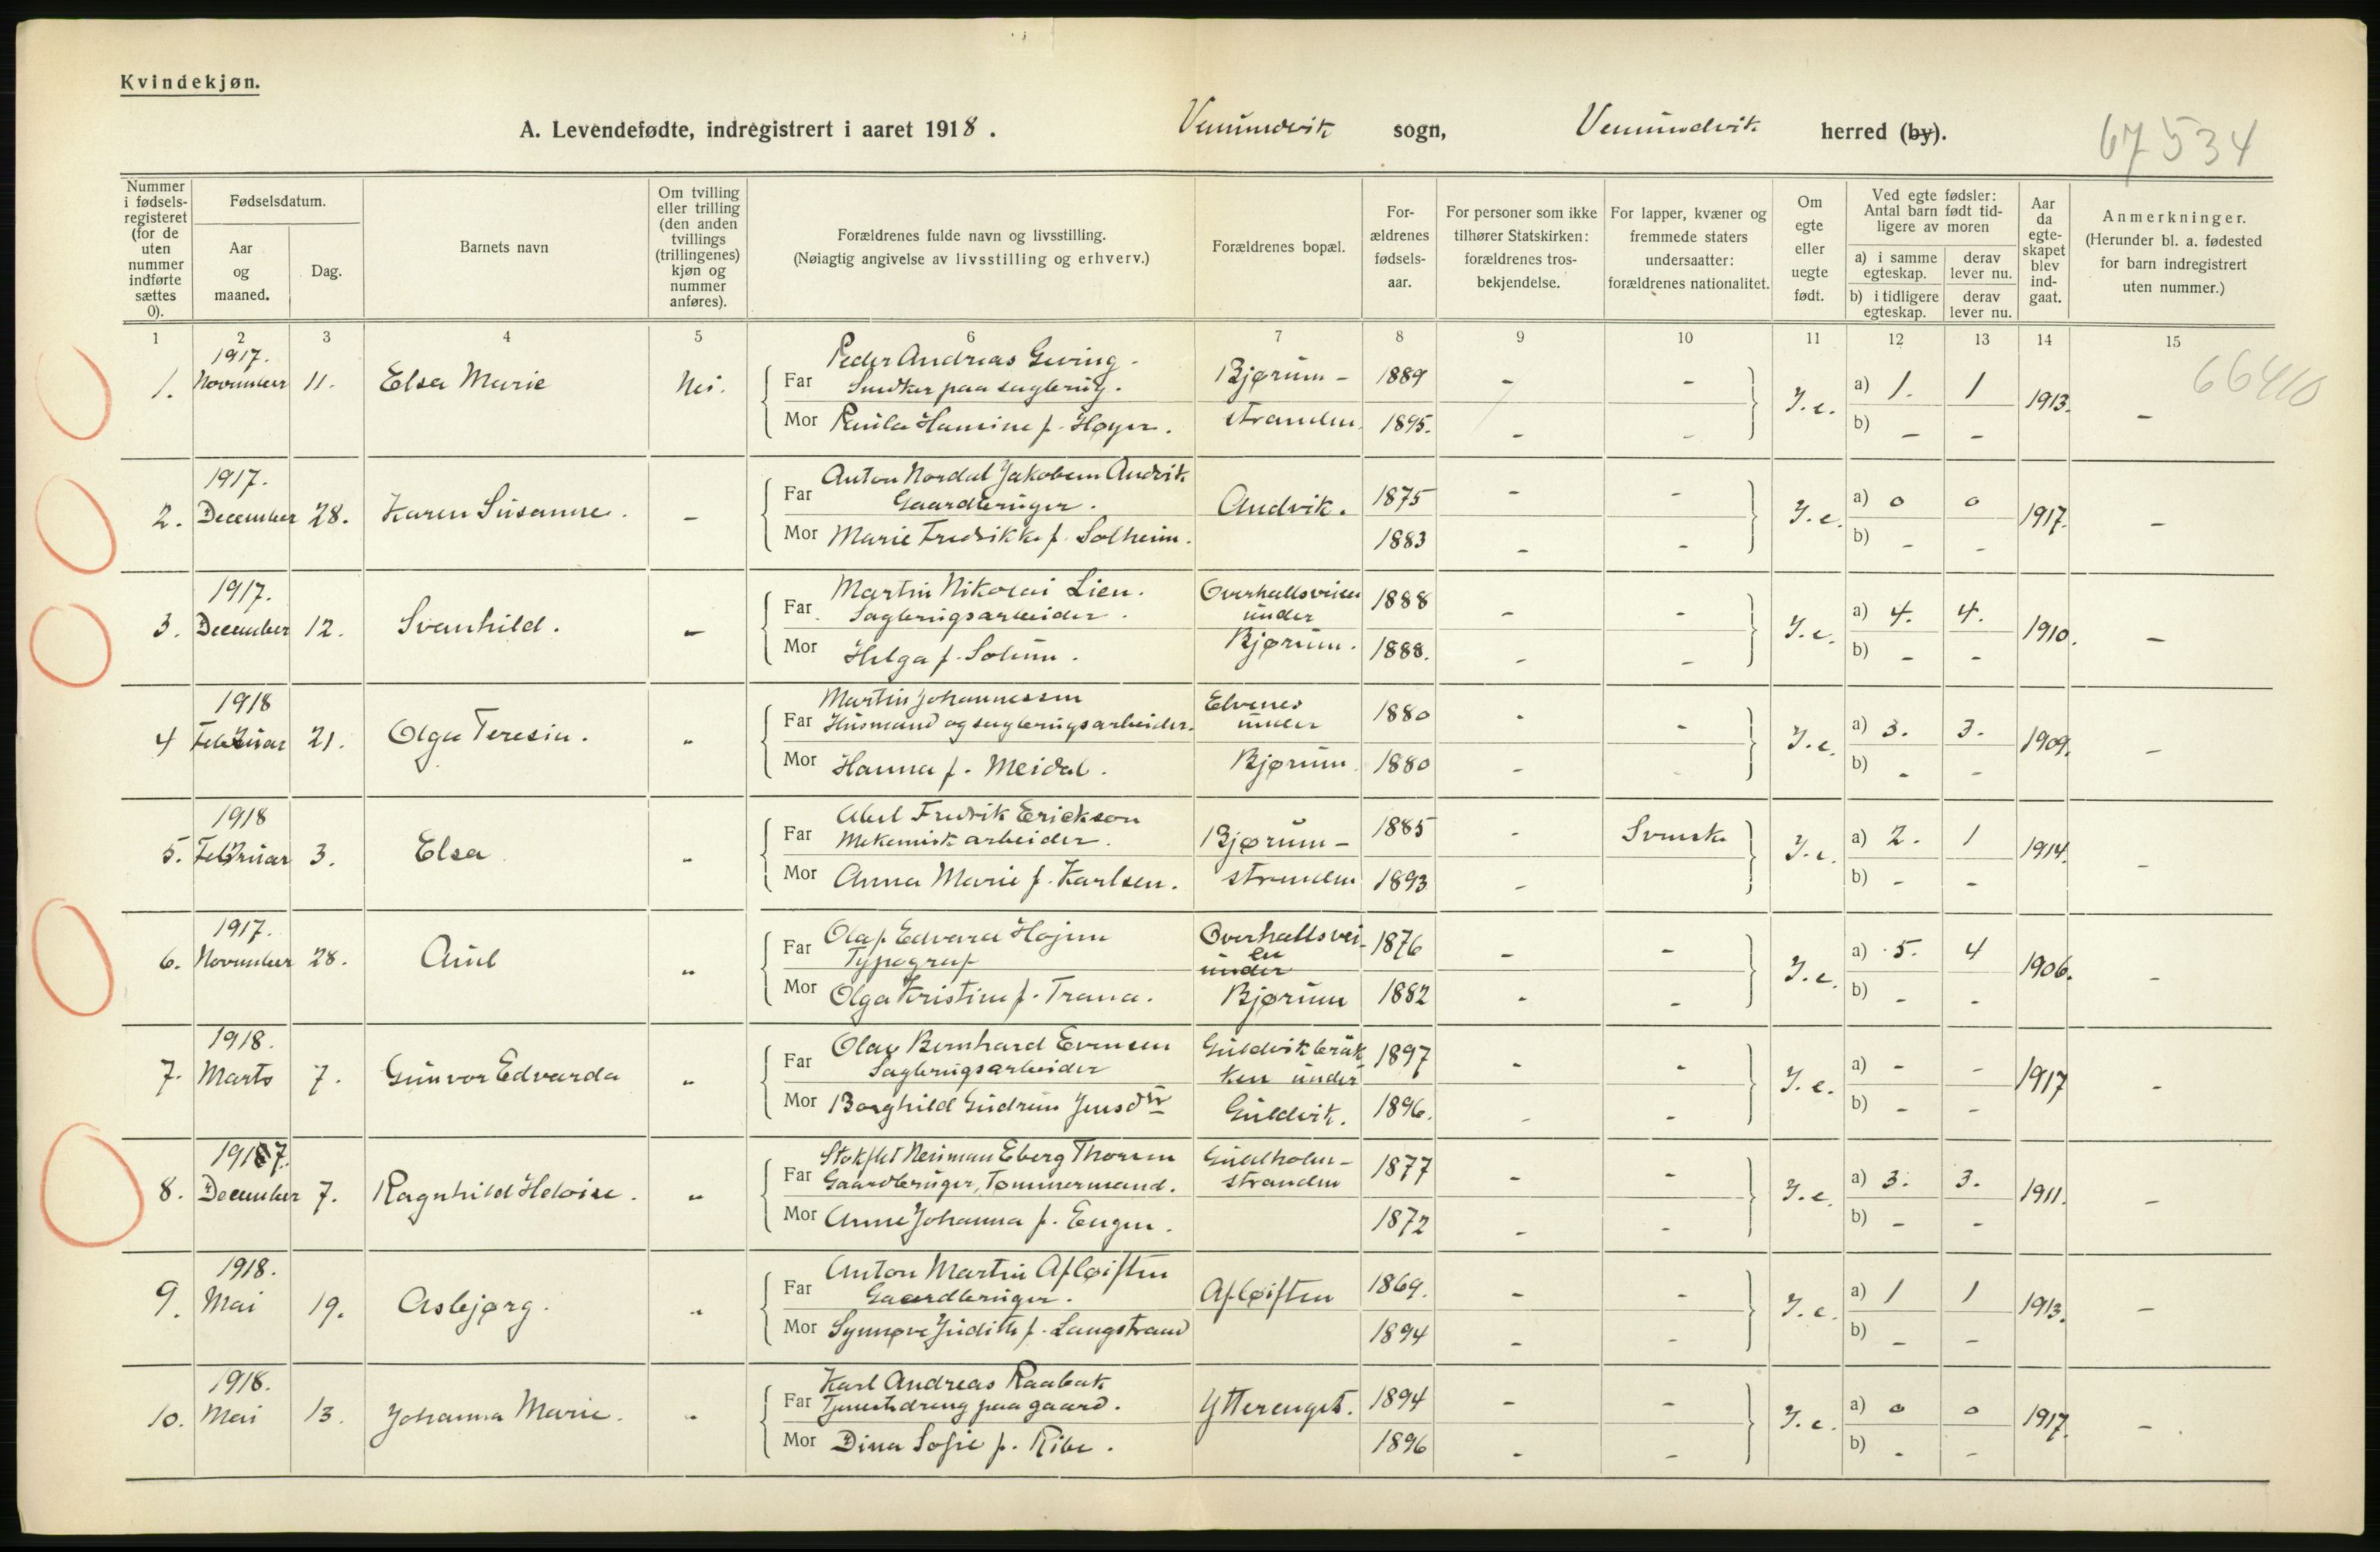 Kvindekjøn.
A. Levendefødte, indregistrert i aaret 1918. Vemundvik sogn, Vemundvik herred (by).
67534
Nummer i fødselsregisteret (for de uten nummer indførte sættes 0).
Fødselsdatum.
Aar og maaned.
Dag.
Barnets navn
Om tvilling eller trilling (den anden tvillings (trillingenes) kjøn og nummer anføres).
Forældrenes fulde navn og livsstilling.
(Nøiagtig angivelse av livsstilling og erhverv.)
Forældrenes bopæl.
Forældrenes fødselsaar.
For personer som ikke tilhører Statskirken: forældrenes trosbekjendelse.
For lapper, kvæner og fremmede staters undersaatter: forældrenes nationalitet.
Om egte eller uegte født.
Ved egte fødsler: Antal barn født tidligere av moren
a) i samme egteskap. derav lever nu.
b) i tidligere egteskap. derav lever nu.
Aar da egteskapet blev indgaat.
Anmerkninger.
(Herunder bl. a. fødested for barn indregistrert uten nummer.)
1 2 3 4 5 6 7 8 9 10 11 12 13 14 15
66410
1917. Peder Andreas Geving.
1. November 11. Elsa Marie Nei. Far Snedker paa sagbrug. Bjørum- 1889 - - J.e. a) 1. 1 1913. -
Mor Paula Hansine f. Høyer. stranden 1895. - - b) - -
1917. Anton Nordal Jakobsen Andvik
2. December 28. Karen Susanne. - Far Gaardbruger. Andvik. 1875 - - J.e. a) 0 0 1917. -
Mor Marie Fredrikke f. Solheim. 1883 - - b) - -
1917. Martin Nikolai Lien. Overhallsveien
3. December 12. Svanhild. - Far Sagbrugsarbeider. under 1888 - - J.e. a) 4. 4. 1910. -
Mor Helga f. Solum. Bjørum. 1888. - - b) - -
1918 Martin Johannessen Elvenes
4 Februar 21. Olga Teresia. " Far Husmand og sagbrugsarbeider. under 1880 - - J.e. a) 3. 3. 1909. -
Mor Hanna f. Meidal. Bjørum. 1880 - b) - -
1918 Abel Fredrik Erickson
5. Februar 3. Elsa " Far Mekanisk arbeider. Bjørum- 1885 - Svensk J.e. a) 2. 1 1914. -
Mor Anna Marie f. Karlsen. stranden 1893 - b) - -
1917. Olaf Edvard Højem Overhallsvei-
6. November 28. Aud " Far Typograf en under 1876 - - J.e. a) 5. 4 1906. -
Mor Olga Kristine f. Trana. Bjørum 1882 - - b) - -
1918. Olav Bernhard Evensen Guldvikbrak
7. Marts 7. Gunvor Edvarda " Far Sagbrugsarbeider ken under 1897 - - J.e. a) - - 1917 -
Mor Borghild Gudrun Jensdtr Guldvik. 1896. - - b) - -
1917. Neuman Eberg Thorsen
8. December 7. Ragnhild Heloise. " Far Gaardbruger, Tømmermand. stranden 1877 - - J.e. a) 3. 3. 1911. -
Mor Anne Johanna f. Engen. 1872 - - b) - -
1918. Anton Martin Afløiften
9. Mai 19. Asbjørg. " Far Gaardbruger. Afløiften 1869. - - J.e. a) 1 1 1913. -
Mor Synnøve Judith f. Langstrand 1894 - - b) - -
1918. Karl Andreas Raabak
10. Mai 13. Johanna Marie. " Far Tjenestdreng paa gaard. Ytterenget. 1894 - - J.e. a) 0 0 1917. -
Mor Dina Sofie f. Ribe. 1896 - - b) - -